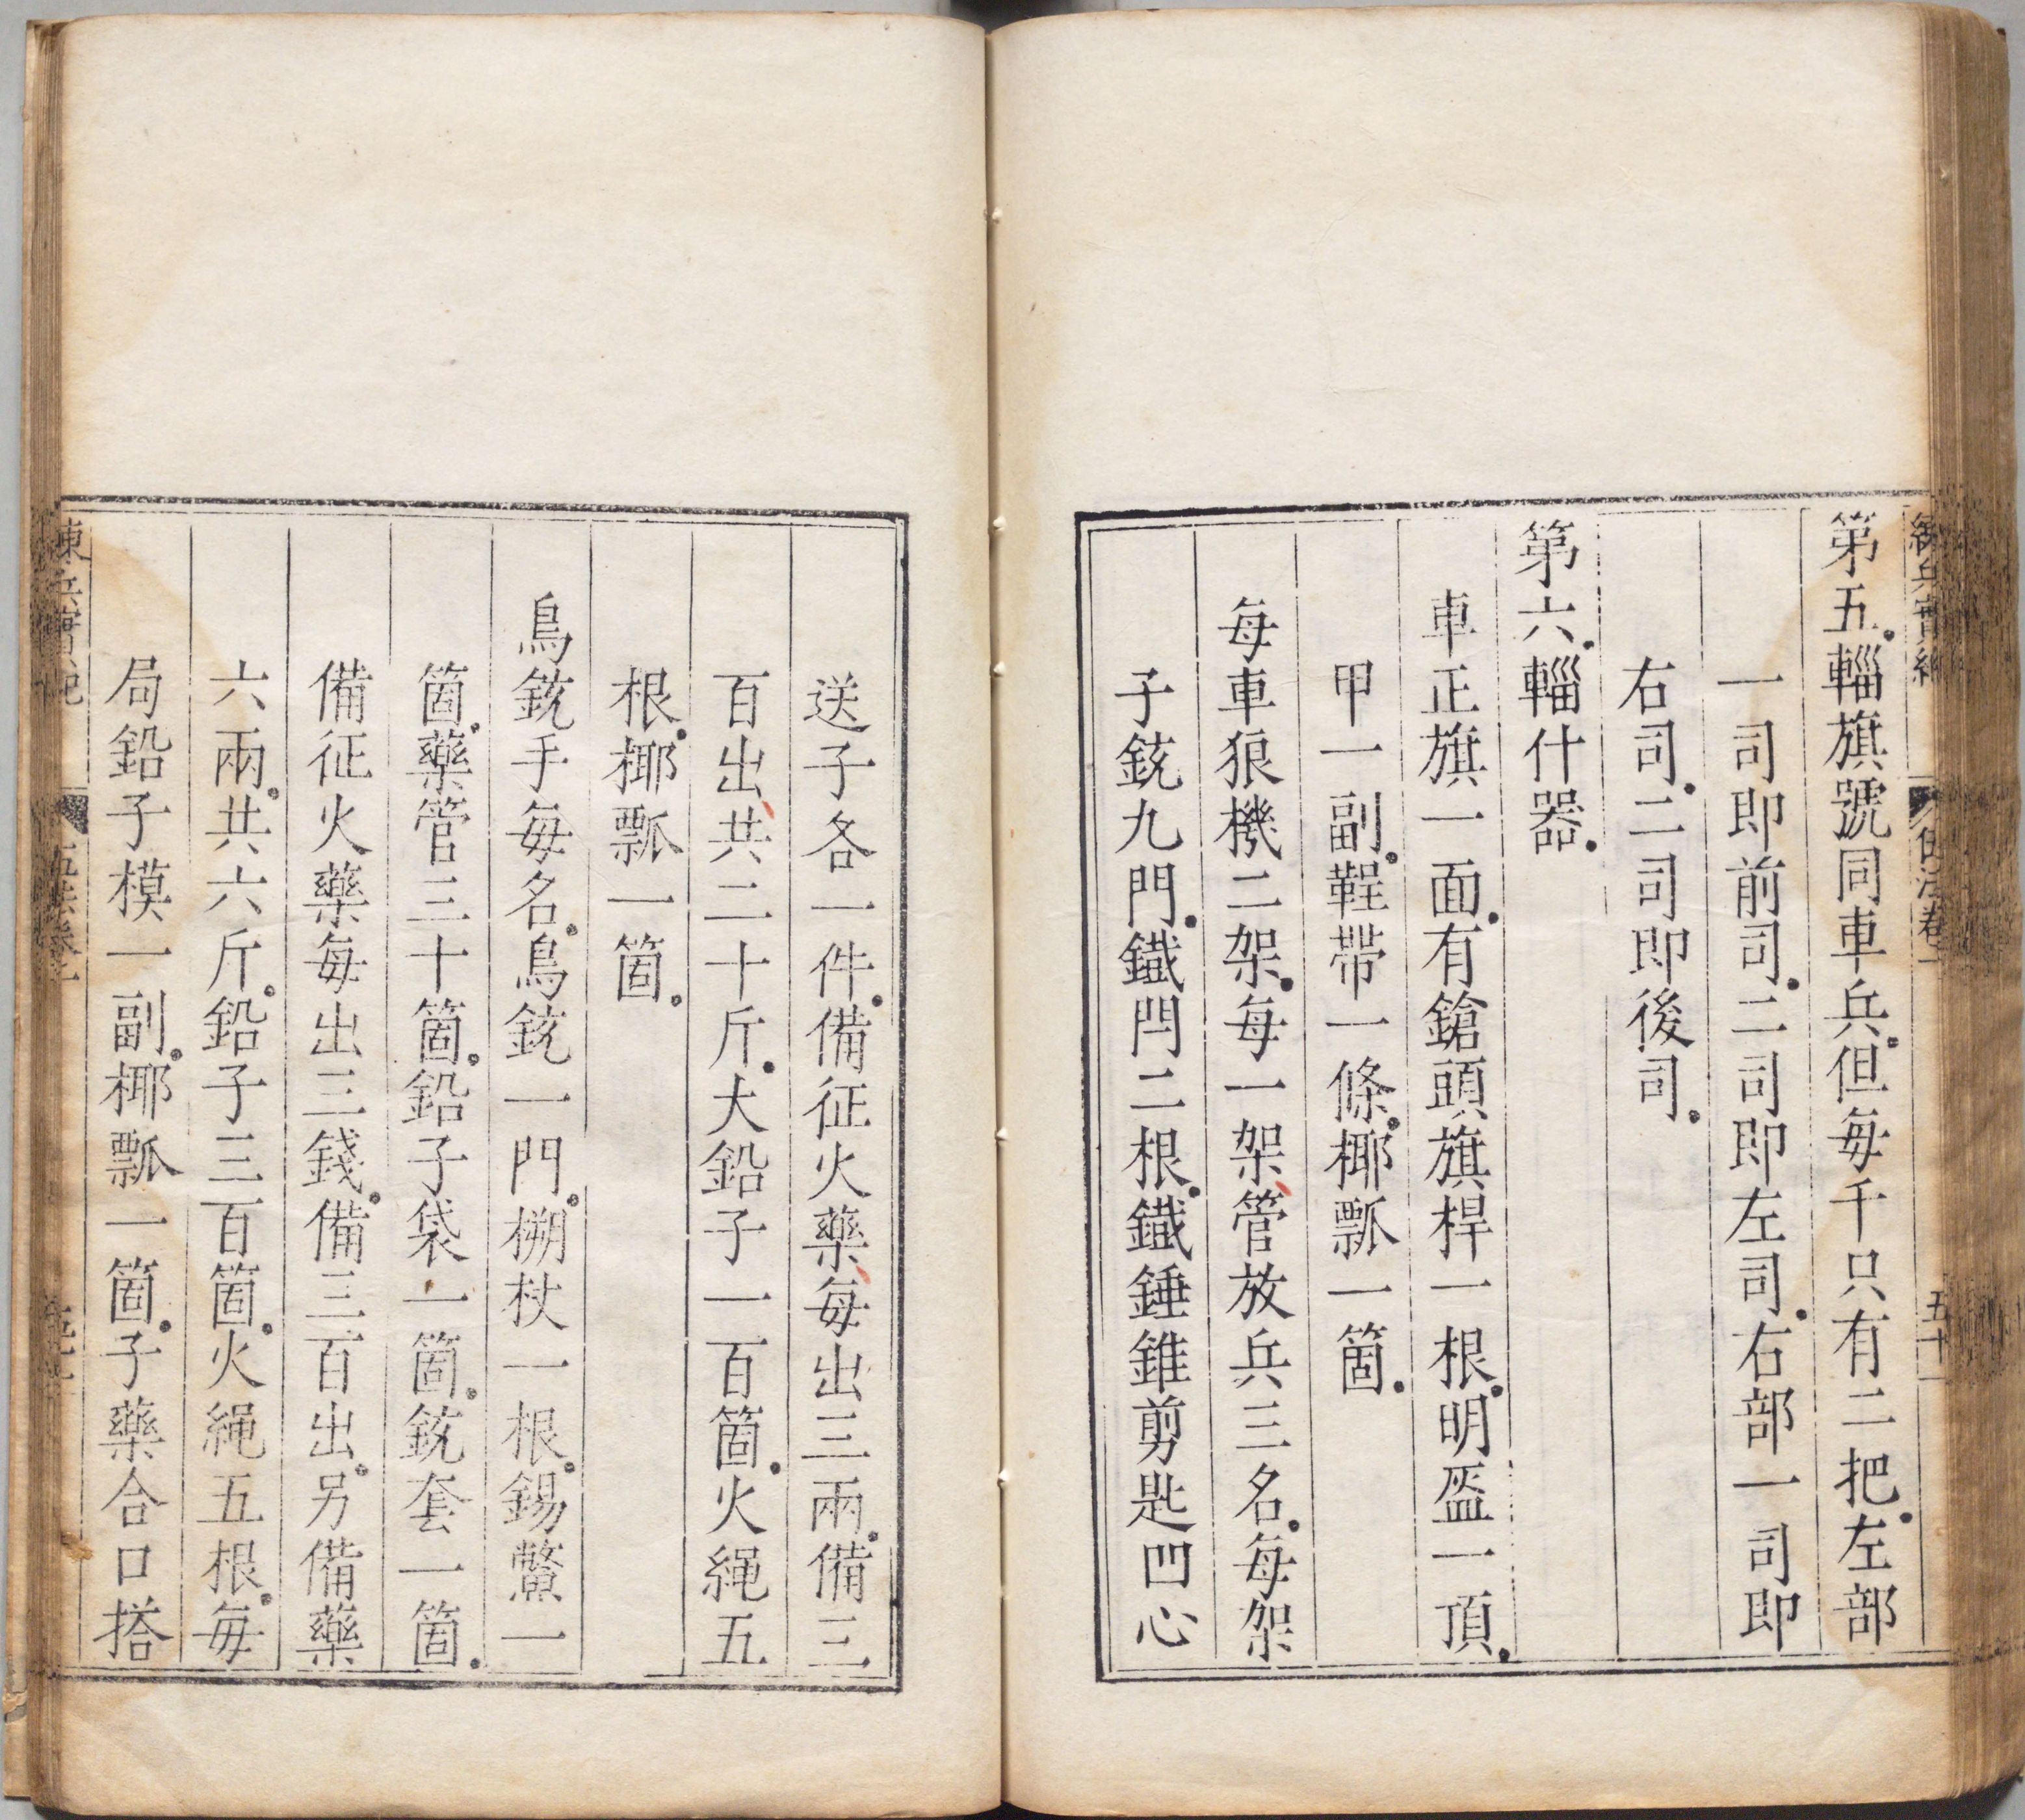 第五輜旗號同車兵但每千只有二把左部
一司即前司二司即左司右部一司即
右司二司即後司
第六輜什器
車正旗一面有鎗頭旗桿一根明盔一頂
甲一副鞓帶一條椰瓢一箇
每車狼機二架每一架管放兵三名每架
子銃九門鐵閂二根鐵錘錐剪匙凹心
送子各一件備征火藥每出三兩備三
百出共二十斤大鉛子一百箇火繩五
根椰瓢一箇
鳥銃手每名鳥銃一門搠杖一根錫鱉一
箇藥管三十箇鉛子袋一箇銃套一箇
備征火藥每出三錢備三百出另備藥
六兩共六斤鉛子三百箇火繩五根每
局鉛子模一副椰瓢一箇子藥合口搭